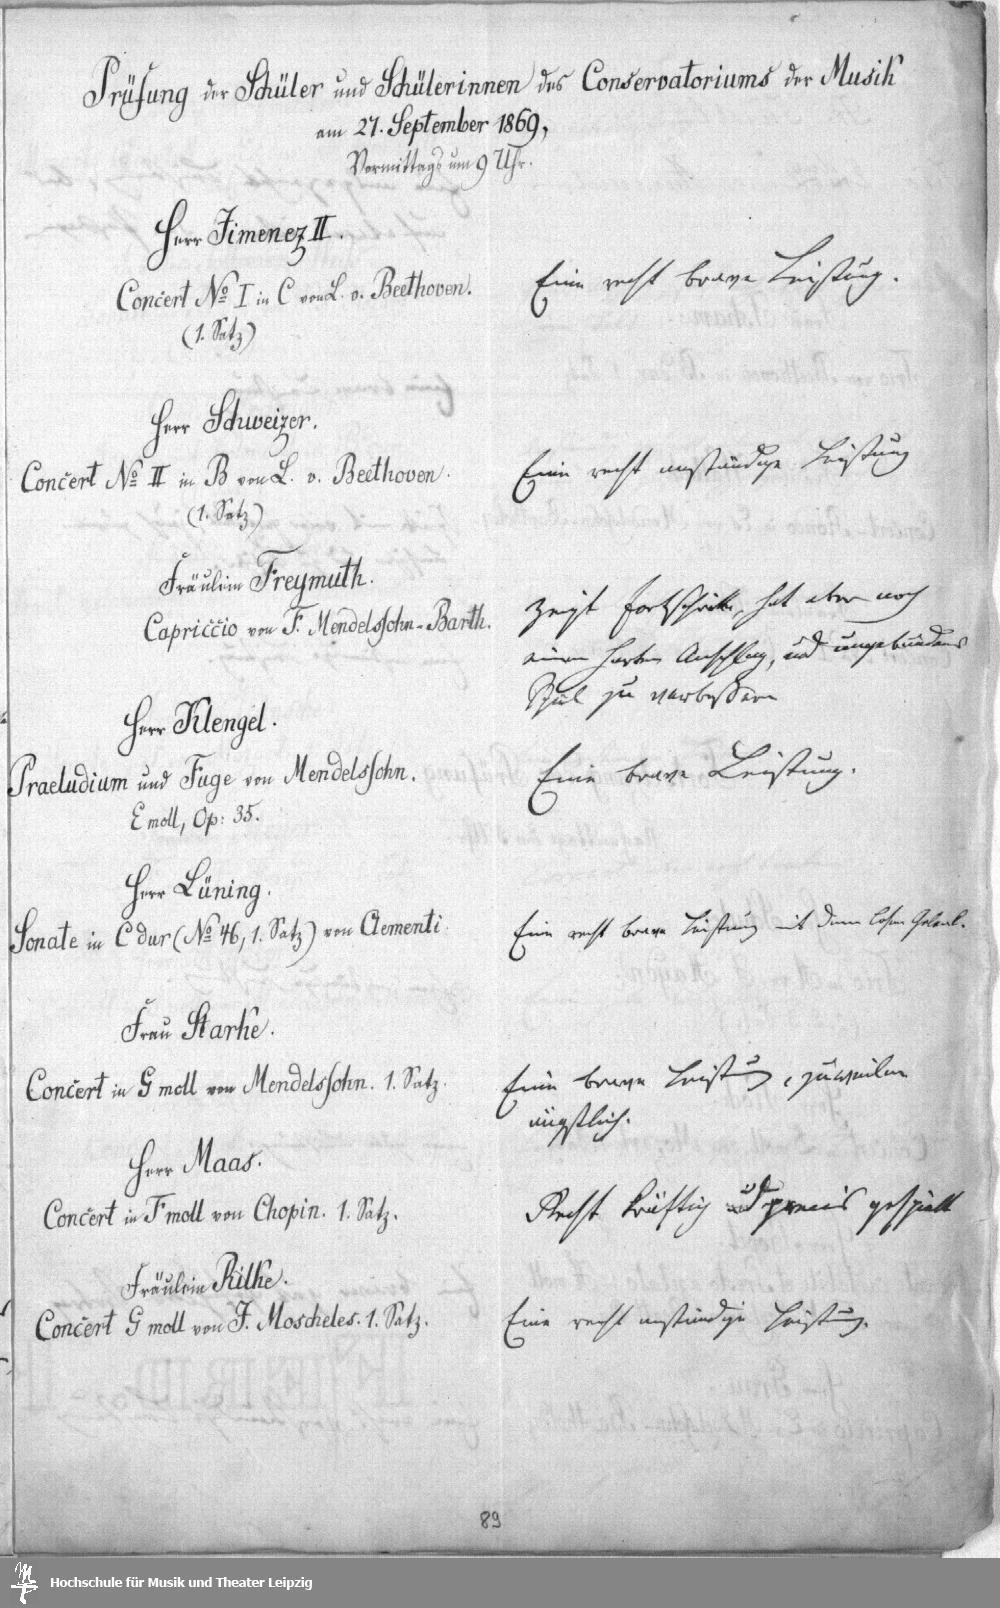 Prüfung der Schüler und Schülerinnen des Conservatoriums der Musik
am 27. September 1869,
Vormittags um 9 Uhr.
Herr Jimenez II.
Concert No I in C von L. v. Beethoven.
(1. Satz)
Eine recht brave Leistung.
Herr Schweizer.
Concert No II in B von L. v. Beethoven.
(1. Satz)
Eine recht anständige Leistung
Fräulein Freymuth.
Capriccio von F. Mendelssohn-Barth.
Zeigt Fortschritte, hat aber noch
einen harten Anschlag, und ungebundenes
Spiel zu verbessern
Herr Klengel.
Praeludium und Fuge von Mendelssohn.
E moll, Op: 35.
Eine brave Leistung.
Herr Lüning.
Sonate in C dur (No 46, 1. Satz) von Clementi
Eine recht brave Leistung mit
Frau Starke.
Concert in G moll von Mendelssohn. 1. Satz.
Eine brave Leistung, zuweilen
ängstlich.
Herr Maas.
Concert in F moll von Chopin. 1. Satz.
Recht kräftig und precis gespielt
Fräulein Rilke.
Concert G moll von J. Moscheles. 1. Satz.
Eine recht anständige Leistung.
89
Hochschule für Musik und Theater Leipzig